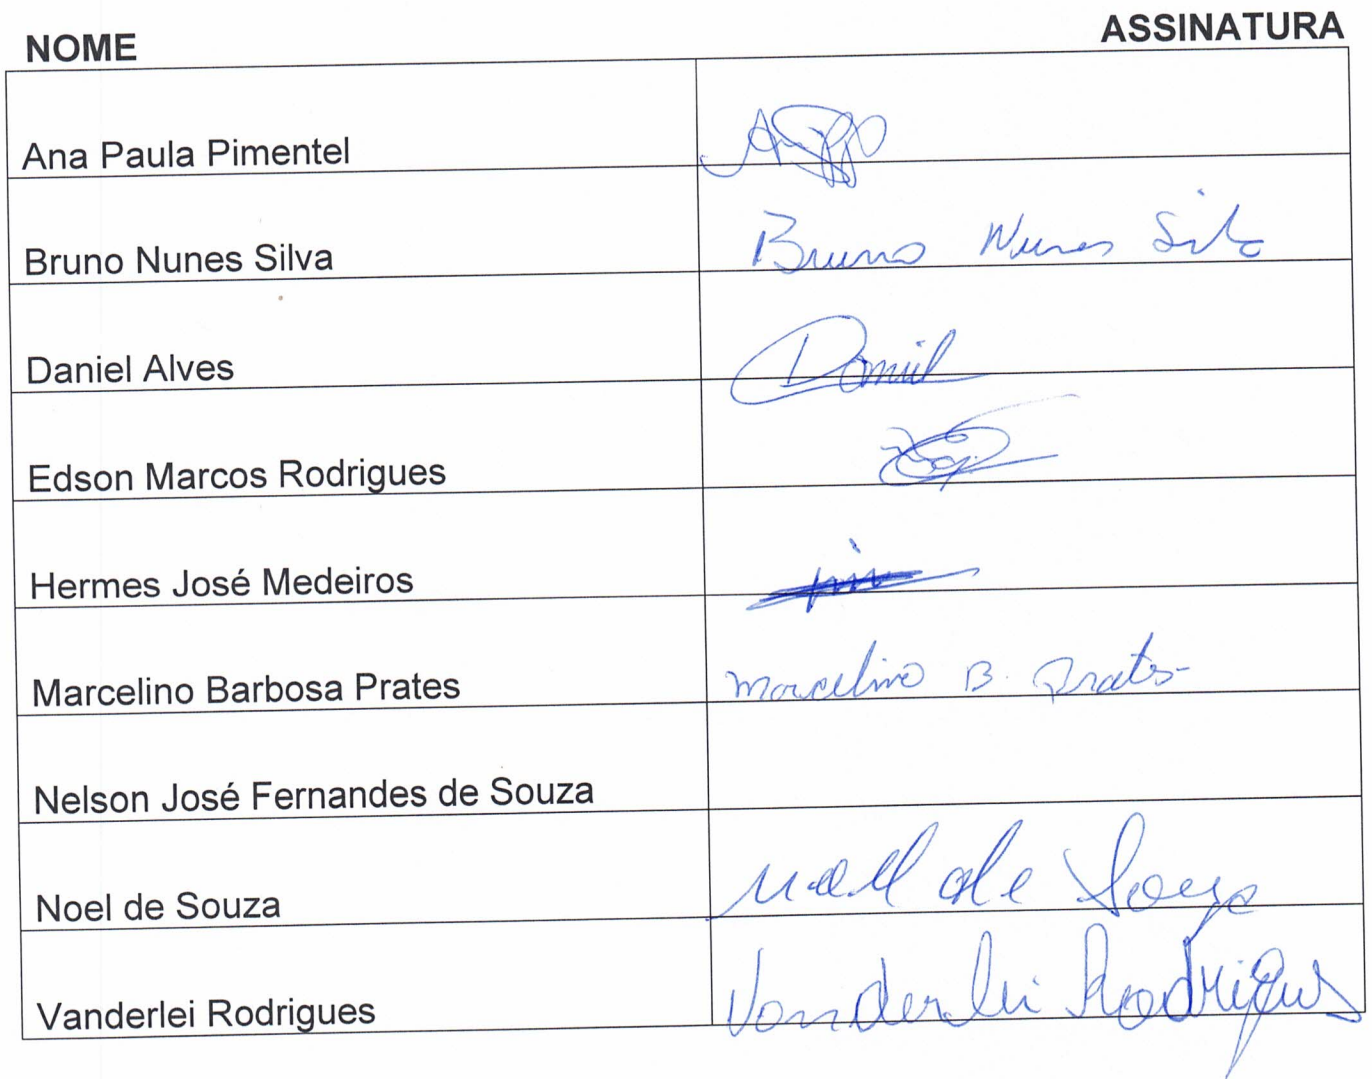 NOME ASSINATURA
Ana Paula Pimentel
Bruno Nunes Silva Bruno Nunes Silva
Daniel Alves Daniel
Edson Marcos Rodrigues
Hermes José Medeiros
Marcelino Barbosa Prates Marcelino B. Prates
Nelson José Fernandes de Souza
Noel de Souza Noel de Souza
Vanderlei Rodrigues Vanderlei Rodrigues